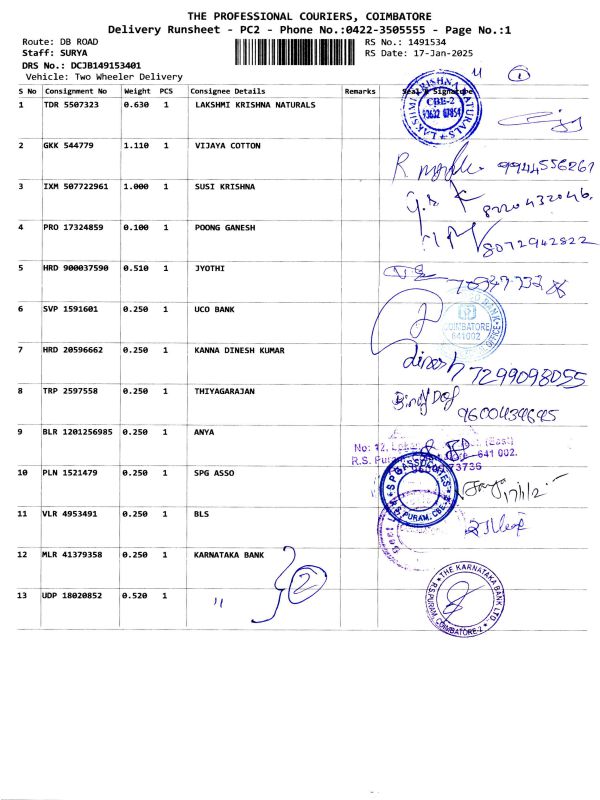 THE PROFESSIONAL COURIERS, COIMBATORE
Delivery Runsheet - PC2 - Phone No.:0422-3505555 - Page No.:1
Route: DB ROAD RS No.: 1491534
Staff: SURYA RS Date: 17-Jan-2025
DRS No.: DCJB149153401
Vehicle: Two Wheeler Delivery
S No Consignment No Weight PCS Consignee Details Remarks Seal & Signature
1 TDR 5507323 0.630 1 LAKSHMI KRISHNA NATURALS
LAKSHMI KRISHNA NATURALS CBE-2
2 GKK 544779 1.110 1 VIJAYA COTTON
9944556267
3 IXM 507722961 1.000 1 SUSI KRISHNA
8220432046
4 PRO 17324859 0.100 1 POONG GANESH
8072942822
5 HRD 900037590 0.510 1 JYOTHI
6 SVP 1591601 0.250 1 UCO BANK
COIMBATORE 641002
7 HRD 20596662 0.250 1 KANNA DINESH KUMAR
dinesh 7299098055
8 TRP 2597558 0.250 1 THIYAGARAJAN
9 BLR 1201256985 0.250 1 ANYA
No: 12, (East)
R.S. Puram 641 002.
10 PLN 1521479 0.250 1 SPG ASSO
SPG ASSOCIATES R.S. PURAM, CBE-2
11 VLR 4953491 0.250 1 BLS
12 MLR 41379358 0.250 1 KARNATAKA BANK
2
13 UDP 18020852 0.520 1 "
THE KARNATAKA BANK LTD. R.S PURAM, COIMBATORE-2